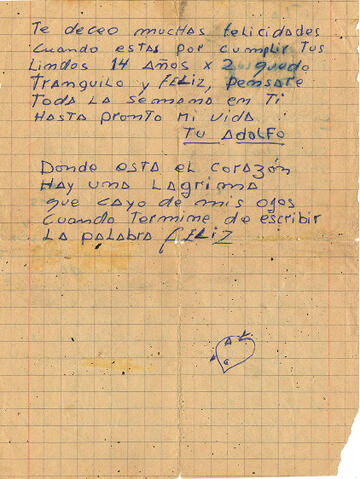 Te deceo muchas felicidades
Cuando estas por cumplir Tus
Lindos 14 Años x 2 quedo
Tranquilo y FELIZ, pensare
Toda La semana en Ti
Hasta pronto mi vida
Tu Adolfo
Donde esta el corazón
Hay una Lagrima
que cayo de mis ojos
Cuando Termine de escribir
La palabra FELIZ
A